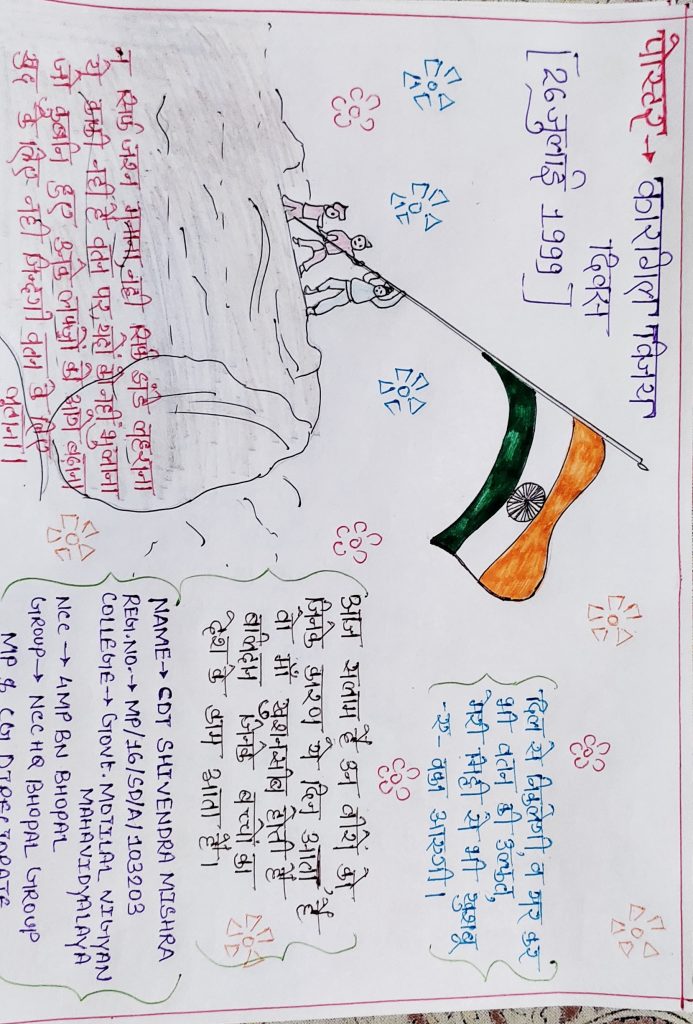 पोस्टर → कारगिल विजय
दिवस
[26 जुलाई 1999]
दिल से निकलेगी, न मर कर
भी वतन की उल्फत,
मेरी मिट्टी से भी खुशबू
-ए- वफा आएगी।
आज सलाम है उन वीरों को
जिनके कारण ये दिन आता है
वो माँ खुशनसीब होती है
बलिदान जिनके बच्चों का
देश के काम आता है।
न सिर्फ जश्न मनाना, नहीं सिर्फ झंडे लहराना
ये काफी नहीं है वतन पर, यादों को नहीं भुलाना
जो कुर्बान हुए उनके लफ्ज़ों को आगे बढ़ाना
खुद के लिए नही ज़िन्दगी वतन के लिए
लुटाना।
NAME → CDT SHIVENDRA MISHRA
REGI.NO. → MP/16/SD/A/103203
COLLEGE → GOVT. MOTILAL VIGYAN
MAHAVIDYALAYA
NCC → 4MP BN BHOPAL
GROUP → NCC HQ BHOPAL GROUP
MP & CG DIRECTORATE